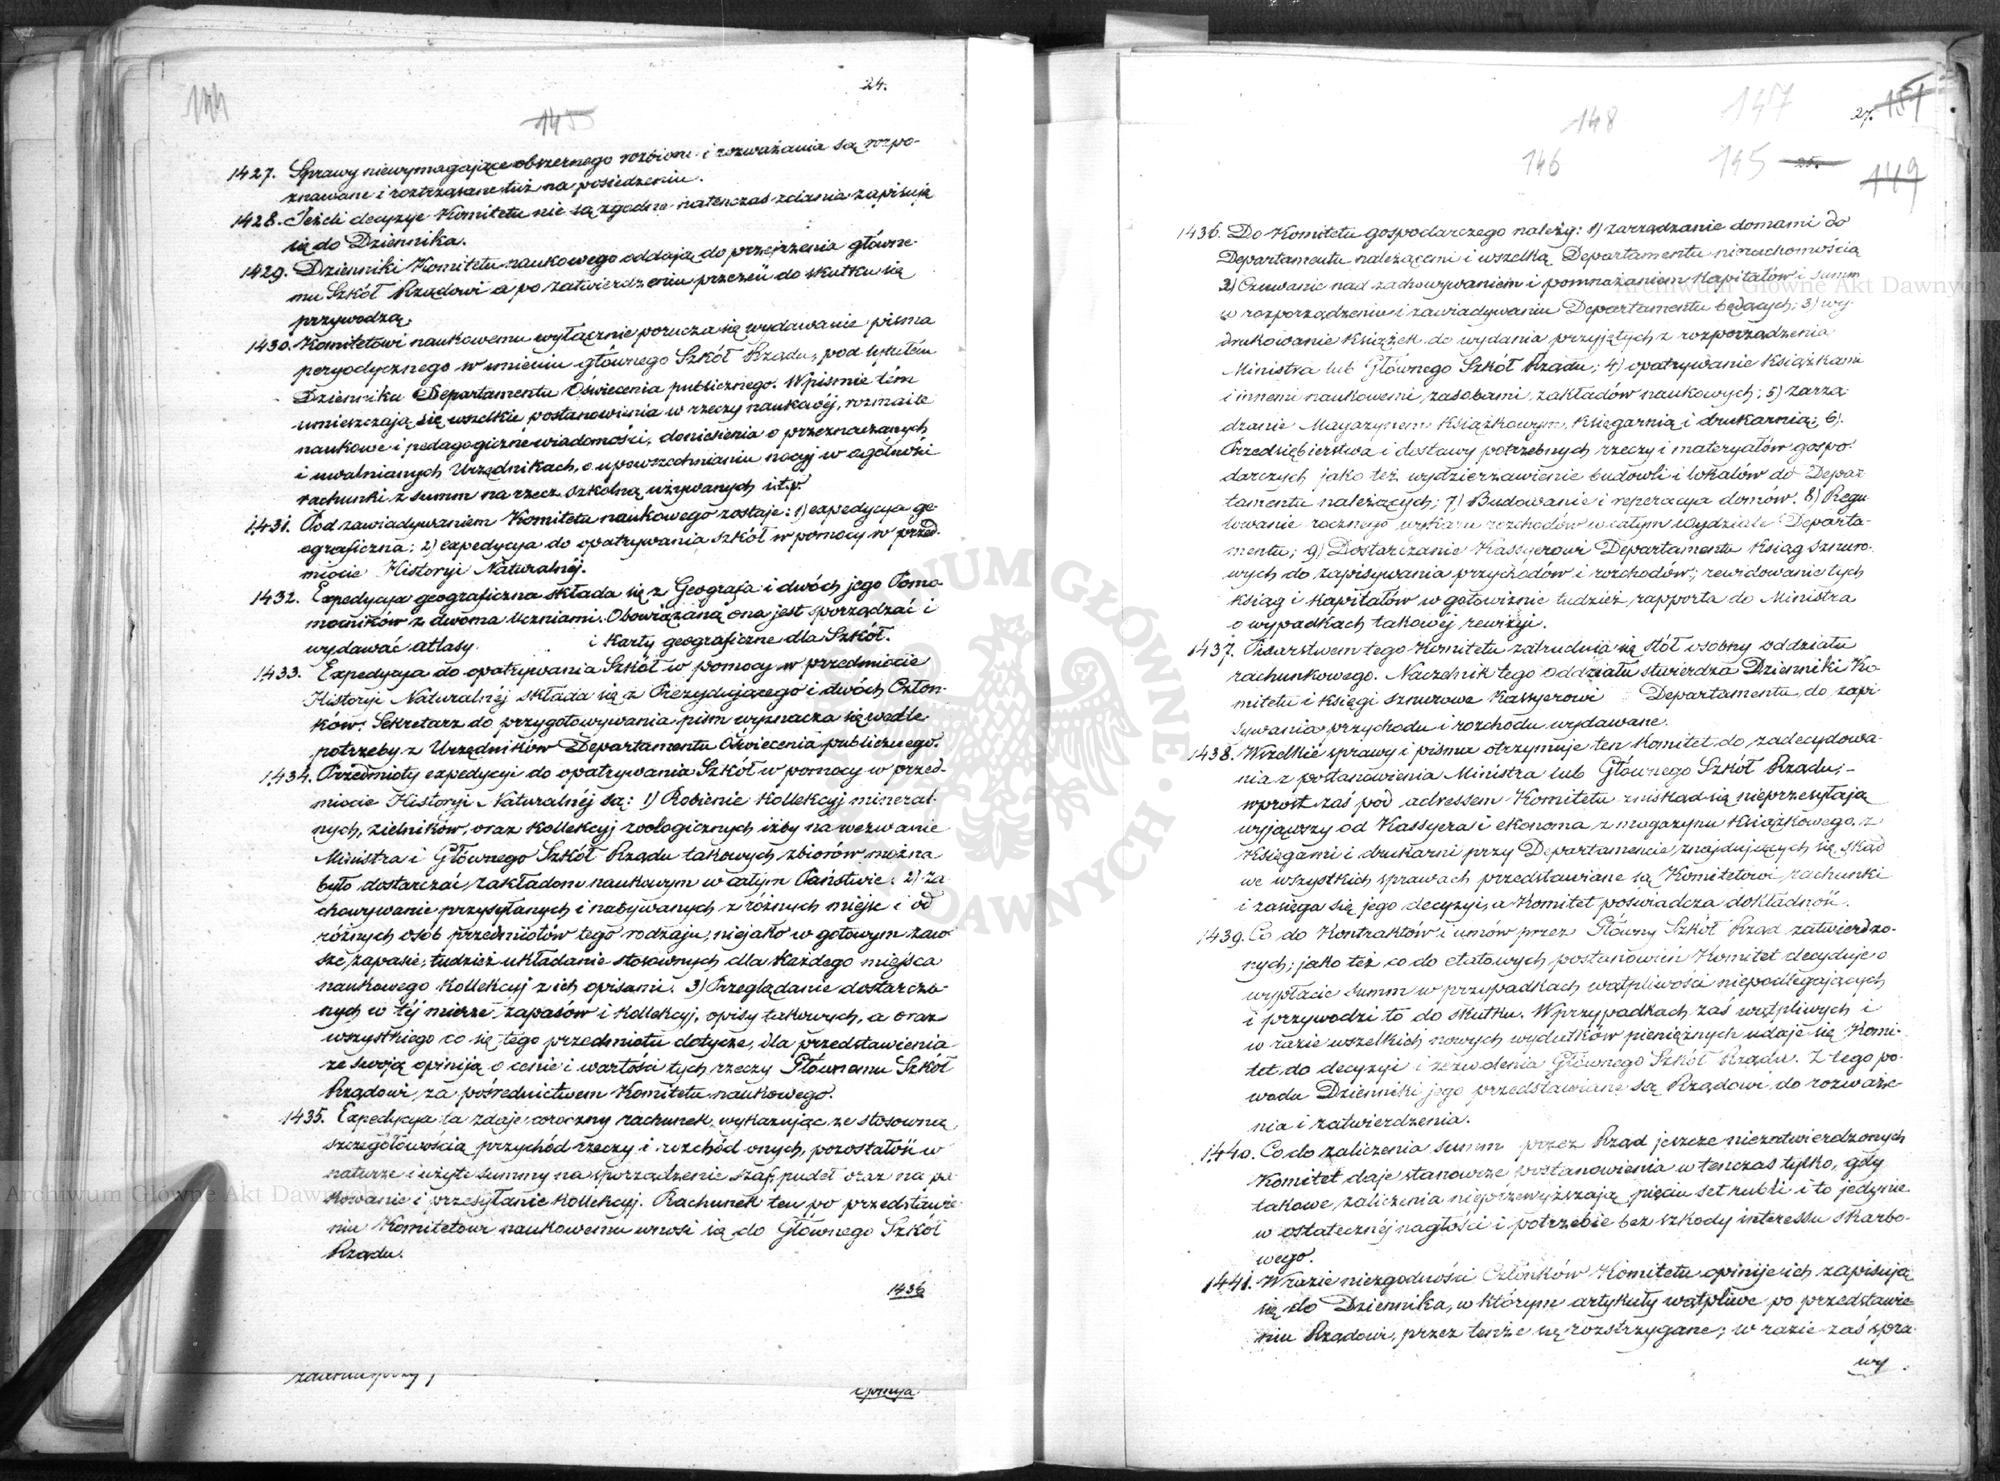 24.
144
1455
1427. Sprawy niewymagające obszernego rozbioru i rozważania są rozpo-
znawane i roztrząsane tuż na posiedzeniu.
1428. Jeżeli decyzye Komitetu nie są zgodne natenczas zdania zapisują
się do Dziennika.
1429. Dzienniki Komitetu naukowego oddają do przejrzenia główne-
mu Szkół Rządowi a po zatwierdzeniu przezeń do skutku się
przywodzą.
1430. Komitetowi naukowemu wyłącznie porucza się wydawanie pisma
peryodycznego w imieniu głównego Szkół Rządu, pod tytułem
Dziennik Departamentu Oświecenia publicznego. W piśmie tém
umieszczają się wszelkie postanowienia w rzeczy naukowéj, rozmaite
naukowe i pedagogiczne wiadomości, doniesienia o przeznaczanych
i uwalnianych Urzędnikach, o upowszechnianiu nauk w ogólności
rachunki z summ na rzecz szkolną używanych i.t.p.
1431. Pod zawiadywaniem Komitetu naukowego zostaje: 1) expedycya ge-
ograficzna: 2) expedycya do opatrywania szkół w pomocy w przed-
miocie Historyi Naturalnéj.
1432. Expedycya geograficzna składa się z Geografa i dwóch jego Pomo-
cników z dwoma Uczniami. Obowiązaną ona jest sporządzać i
wydawać atlasy i karty geograficzne dla Szkół.
1433. Expedycya do opatrywania Szkół w pomocy w przedmiocie
Historyi Naturalnéj składa się z Prezydującego i dwóch Człon-
ków: Sekretarz do przygotowywania pism wyznacza się wedle
potrzeby z Urzędników Departamentu Oświecenia publicznego.
1434. Przedmioty expedycyi do opatrywania Szkół w pomocy w przed-
miocie Historyi Naturalnéj są: 1) Robienie kollekcyj mineral-
nych, zielników, oraz kollekcyj zoologicznych iżby na wezwanie
Ministra i Głównego Szkół Rządu takowych zbiorów można
było dostarczać zakładom naukowym w całym Państwie: 2) Za-
chowywanie przysyłanych i nabywanych z różnych miejsc i od
różnych osób przedmiotów tego rodzaju, niejako w gotowym zaw-
sze zapasie, tudzież układanie stosownych dla każdego miejsca
naukowego kollekcyj z ich opisami. 3) Przeglądanie dostarczo-
nych w téj mierze zapasów i kollekcyj, opisy takowych, a oraz
wszystkiego co się tego przedmiotu dotycze, dla przedstawienia
ze swoją opiniją o cenie i wartości tych rzeczy Głównemu Szkół
Rządowi, za pośrednictwem Komitetu naukowego.
1435. Expedycya ta zdaje coroczny rachunek, wykazując ze stosowną
szczegółowością przychód rzeczy i rozchód onych, pozostałość w
naturze i użyte summy na sporządzenie szaf, pudeł oraz na pa-
kowanie i przesyłanie kollekcyj. Rachunek ten po przedstawie-
niu Komitetowi naukowemu wnosi się do Głównego Szkół
Rządu.
1436
opinija
27. 151
147
148
146 145 25. 149
1436. Do Komitetu gospodarczego należy: 1) zarządzanie domami do
Departamentu należącemi i wszelką Departamentu nieruchomością
2) Czuwanie nad zachowywaniem i pomnażaniem kapitałów i summ
w rozporządzeniu i zawiadywaniu Departamentu będących; 3) wy-
drukowanie książek do wydania przyjętych z rozporządzenia
Ministra lub Głównego Szkół Rządu; 4) opatrywanie książkami
i innemi naukowemi zasobami zakładów naukowych; 5) zarzą-
dzanie Magazynem książkowym, księgarnią i drukarnią; 6)
Przedsiębierstwa i dostawy potrzebnych rzeczy i materyałów gospo-
darczych jako też wydzierżawienie budowli i lokalów do Depar-
tamentu należących; 7) Budowanie i reperacya domów. 8) Regu-
lowanie rocznego wykazu rozchodów w całym Wydziale Departa-
mentu; 9) Dostarczanie Kassyerowi Departamentu ksiąg sznuro-
wych do zapisywania przychodów i rozchodów; rewidowanie tych
ksiąg i kapitałów w gotowiźnie tudzież rapporta do Ministra
o wypadkach takowéj rewizyi.
1437. Pisarstwem tego Komitetu zatrudnia się stół osobny oddziału
rachunkowego. Naczelnik tego oddziału stwierdza Dzienniki Ko-
mitetu i księgi sznurowe Kassyerowi Departamentu do zapi-
sywania przychodu i rozchodu wydawane.
1438. Wszelkie sprawy i pisma otrzymuje ten Komitet do zadecydowa-
nia z postanowienia Ministra lub Głównego Szkół Rządu; -
wprost zaś pod adressem Komitetu zniskąd się nieprzesyłają
wyjąwszy od Kassyera i ekonoma z magazynu książkowego, z
księgarni i drukarni przy Departamencie znajdujących się, skąd
we wszystkich sprawach przedstawiane są Komitetowi rachunki
i zasięga się jego decyzyi, a Komitet poświadcza dokładność.
1439. Co do Kontraktów i umów przez Główny Szkół Rząd zatwierdzo-
nych; jako też co do etatowych postanowień Komitet decyduje o
wypłacie summ w przypadkach wątpliwości niepodlegających
i przywodzi to do skutku. W przypadkach zaś wątpliwych i
w razie wszelkich nowych wydatków pieniężnych udaje się Komi-
tet do decyzyi i zezwolenia Głównego Szkół Rządu. Z tego po-
wodu Dzienniki jego przedstawiane są Rządowi do rozważe-
nia i zatwierdzenia.
1440. Co do zaliczenia summ przez Rząd jeszcze niezatwierdzonych
Komitet daje stanowcze postanowienia wtenczas tylko, gdy
takowe zaliczenia nieprzewyższają pięciu set rubli i to jedynie
w ostatecznéj nagłości i potrzebie bez szkody interessu skarbo-
wego.
1441. W razie niezgodności Członków Komitetu opinije ich zapisują
się do Dziennika, w którym artykuły wątpliwe po przedstawie-
niu Rządowi, przez tenże są rozstrzygane; w razie zaś spra-
wy
Archiwum Główne Akt Dawnych
Archiwum Główne Akt Dawnych
ARCHIWUM GŁÓWNE AKT DAWNYCH